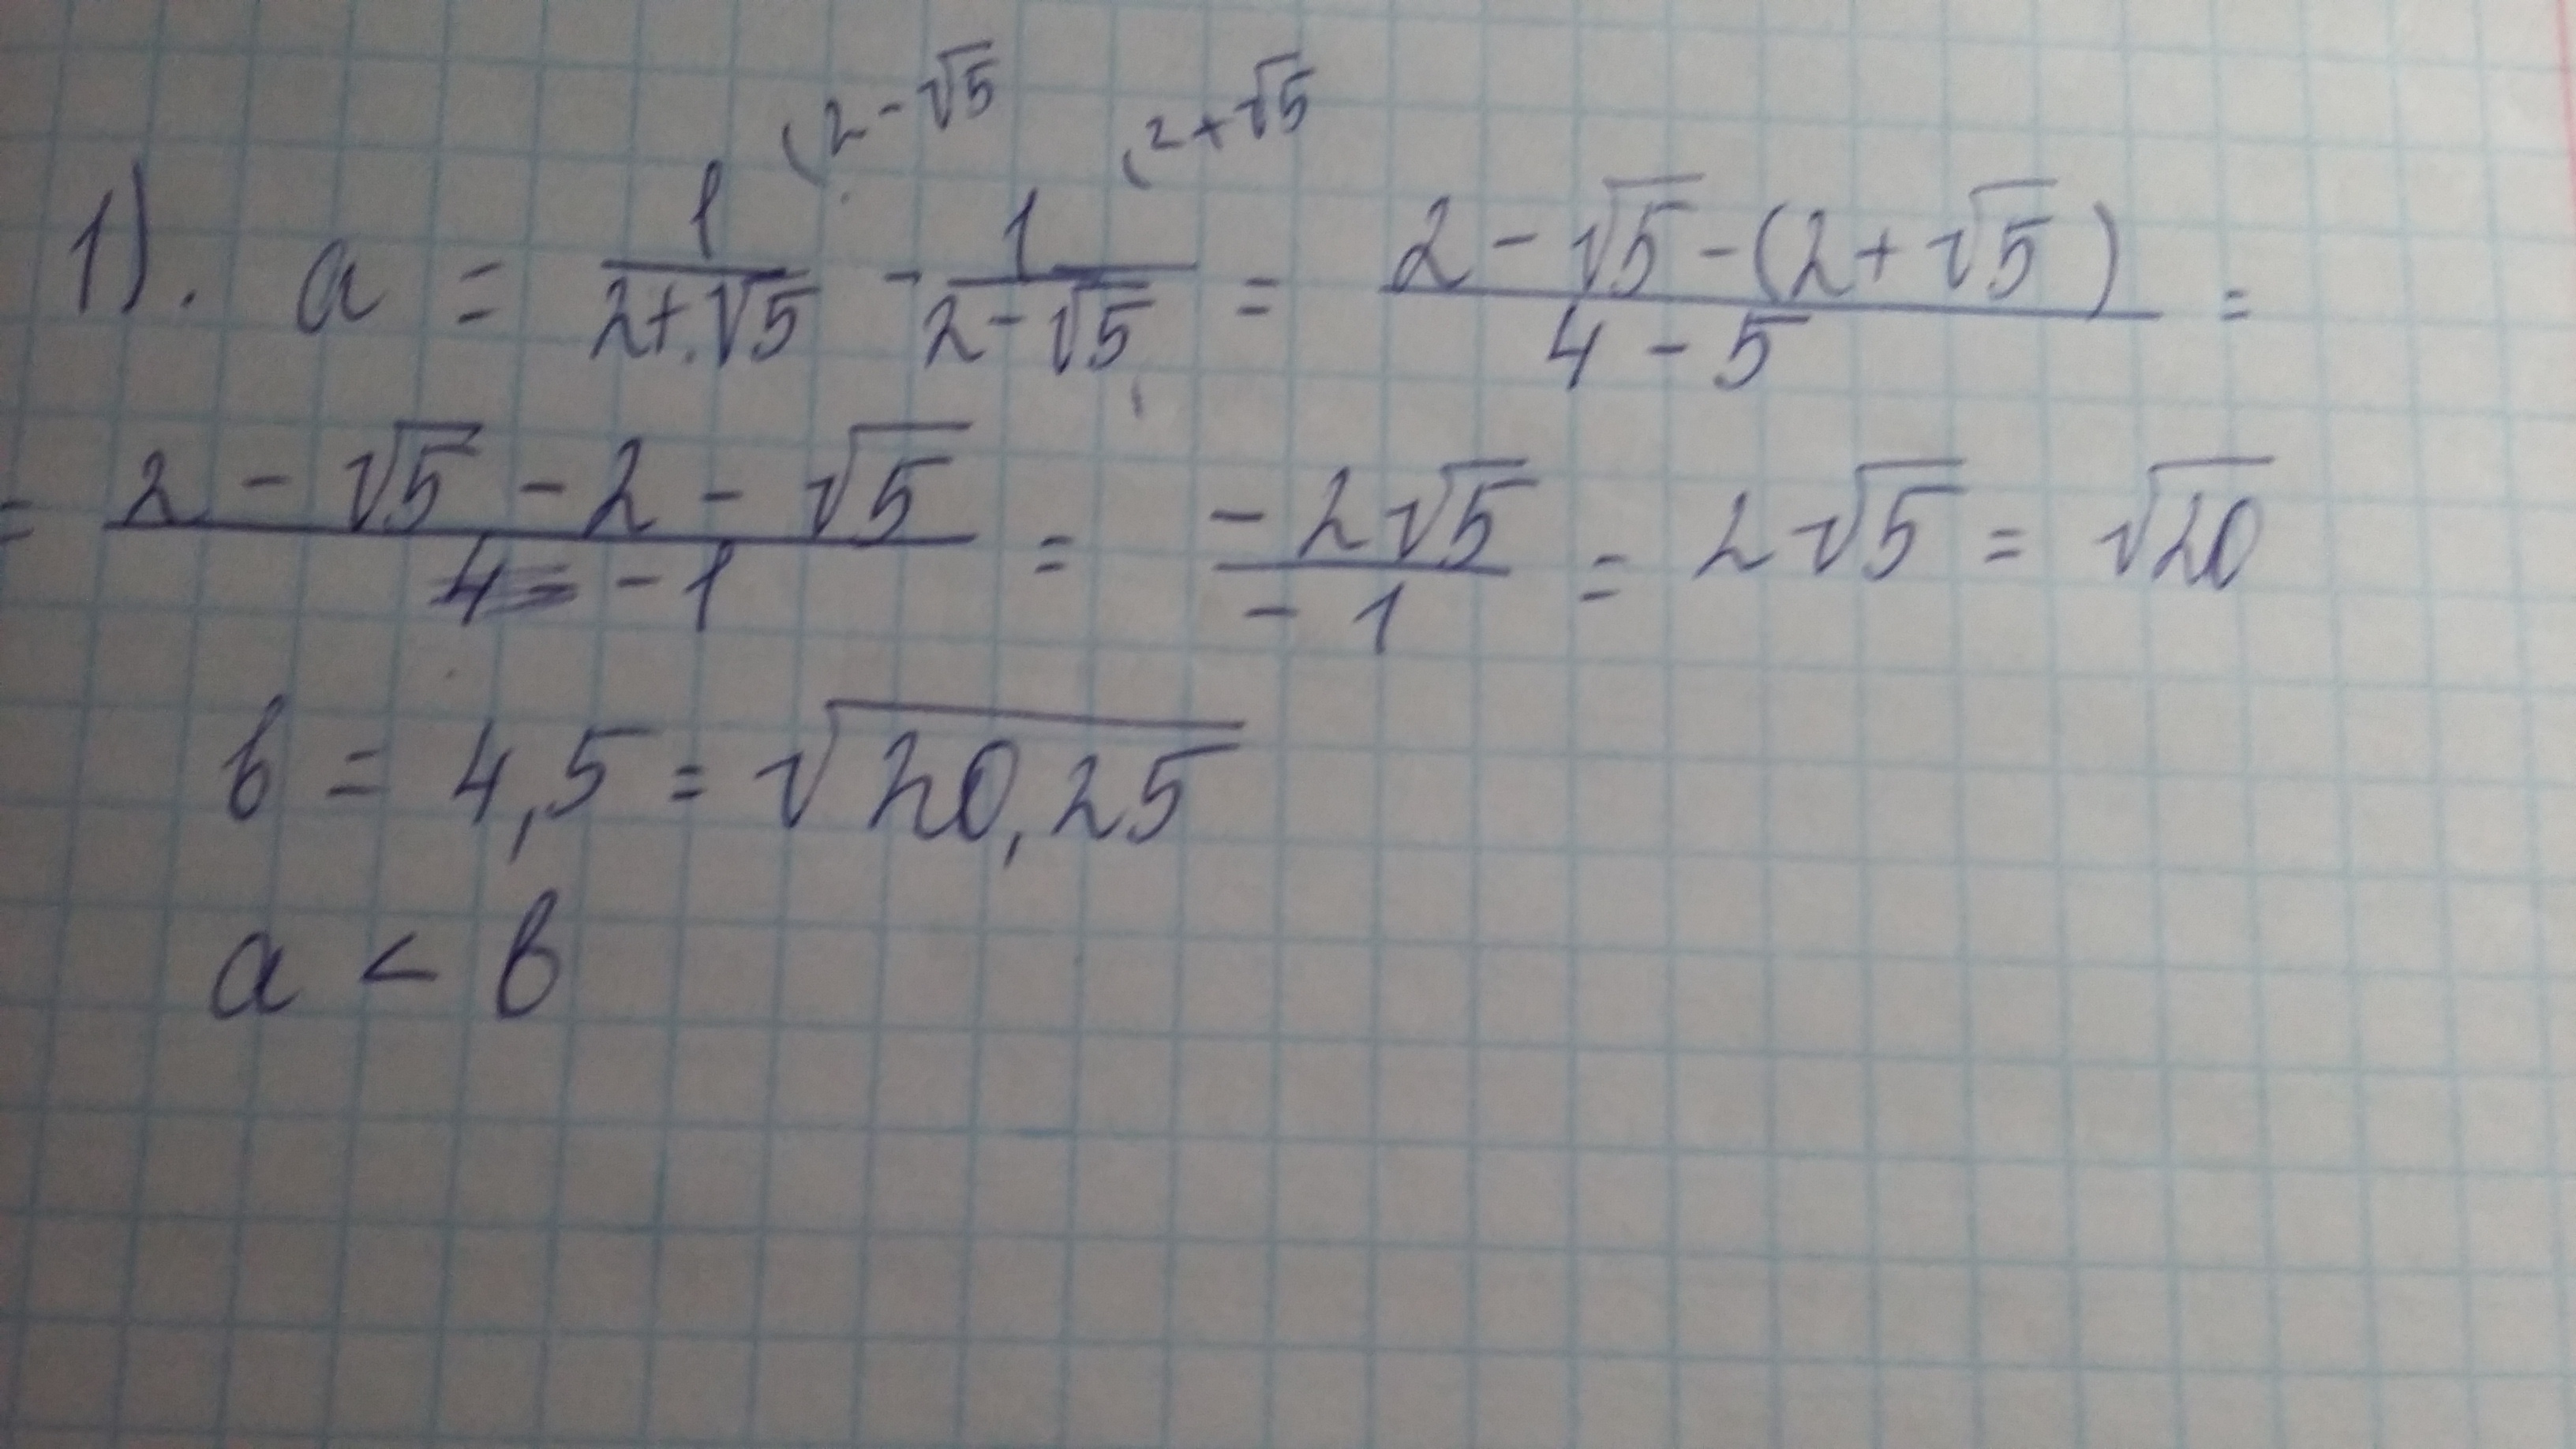 (2-√5 (2+√5
1). a = 1/(2+√5) - 1/(2-√5) = (2-√5-(2+√5))/(4-5) =
= (2-√5-2-√5)/(-1) = (-2√5)/(-1) = 2√5 = √20
b = 4,5 = √20,25
a < b